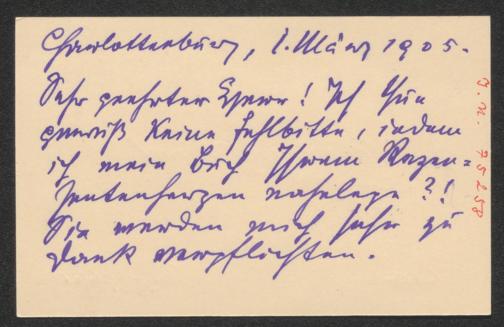 Charlottenburg, 1. März 1905.
Sehr geehrter Herr! Ich thue
gewiß keine Fehlbitte, indem
ich mein Buch Ihrem Rezen=
sentenherzen nahelege?!
Sie werden mich sehr zu
Dank verpflichten.
J. N. 75258